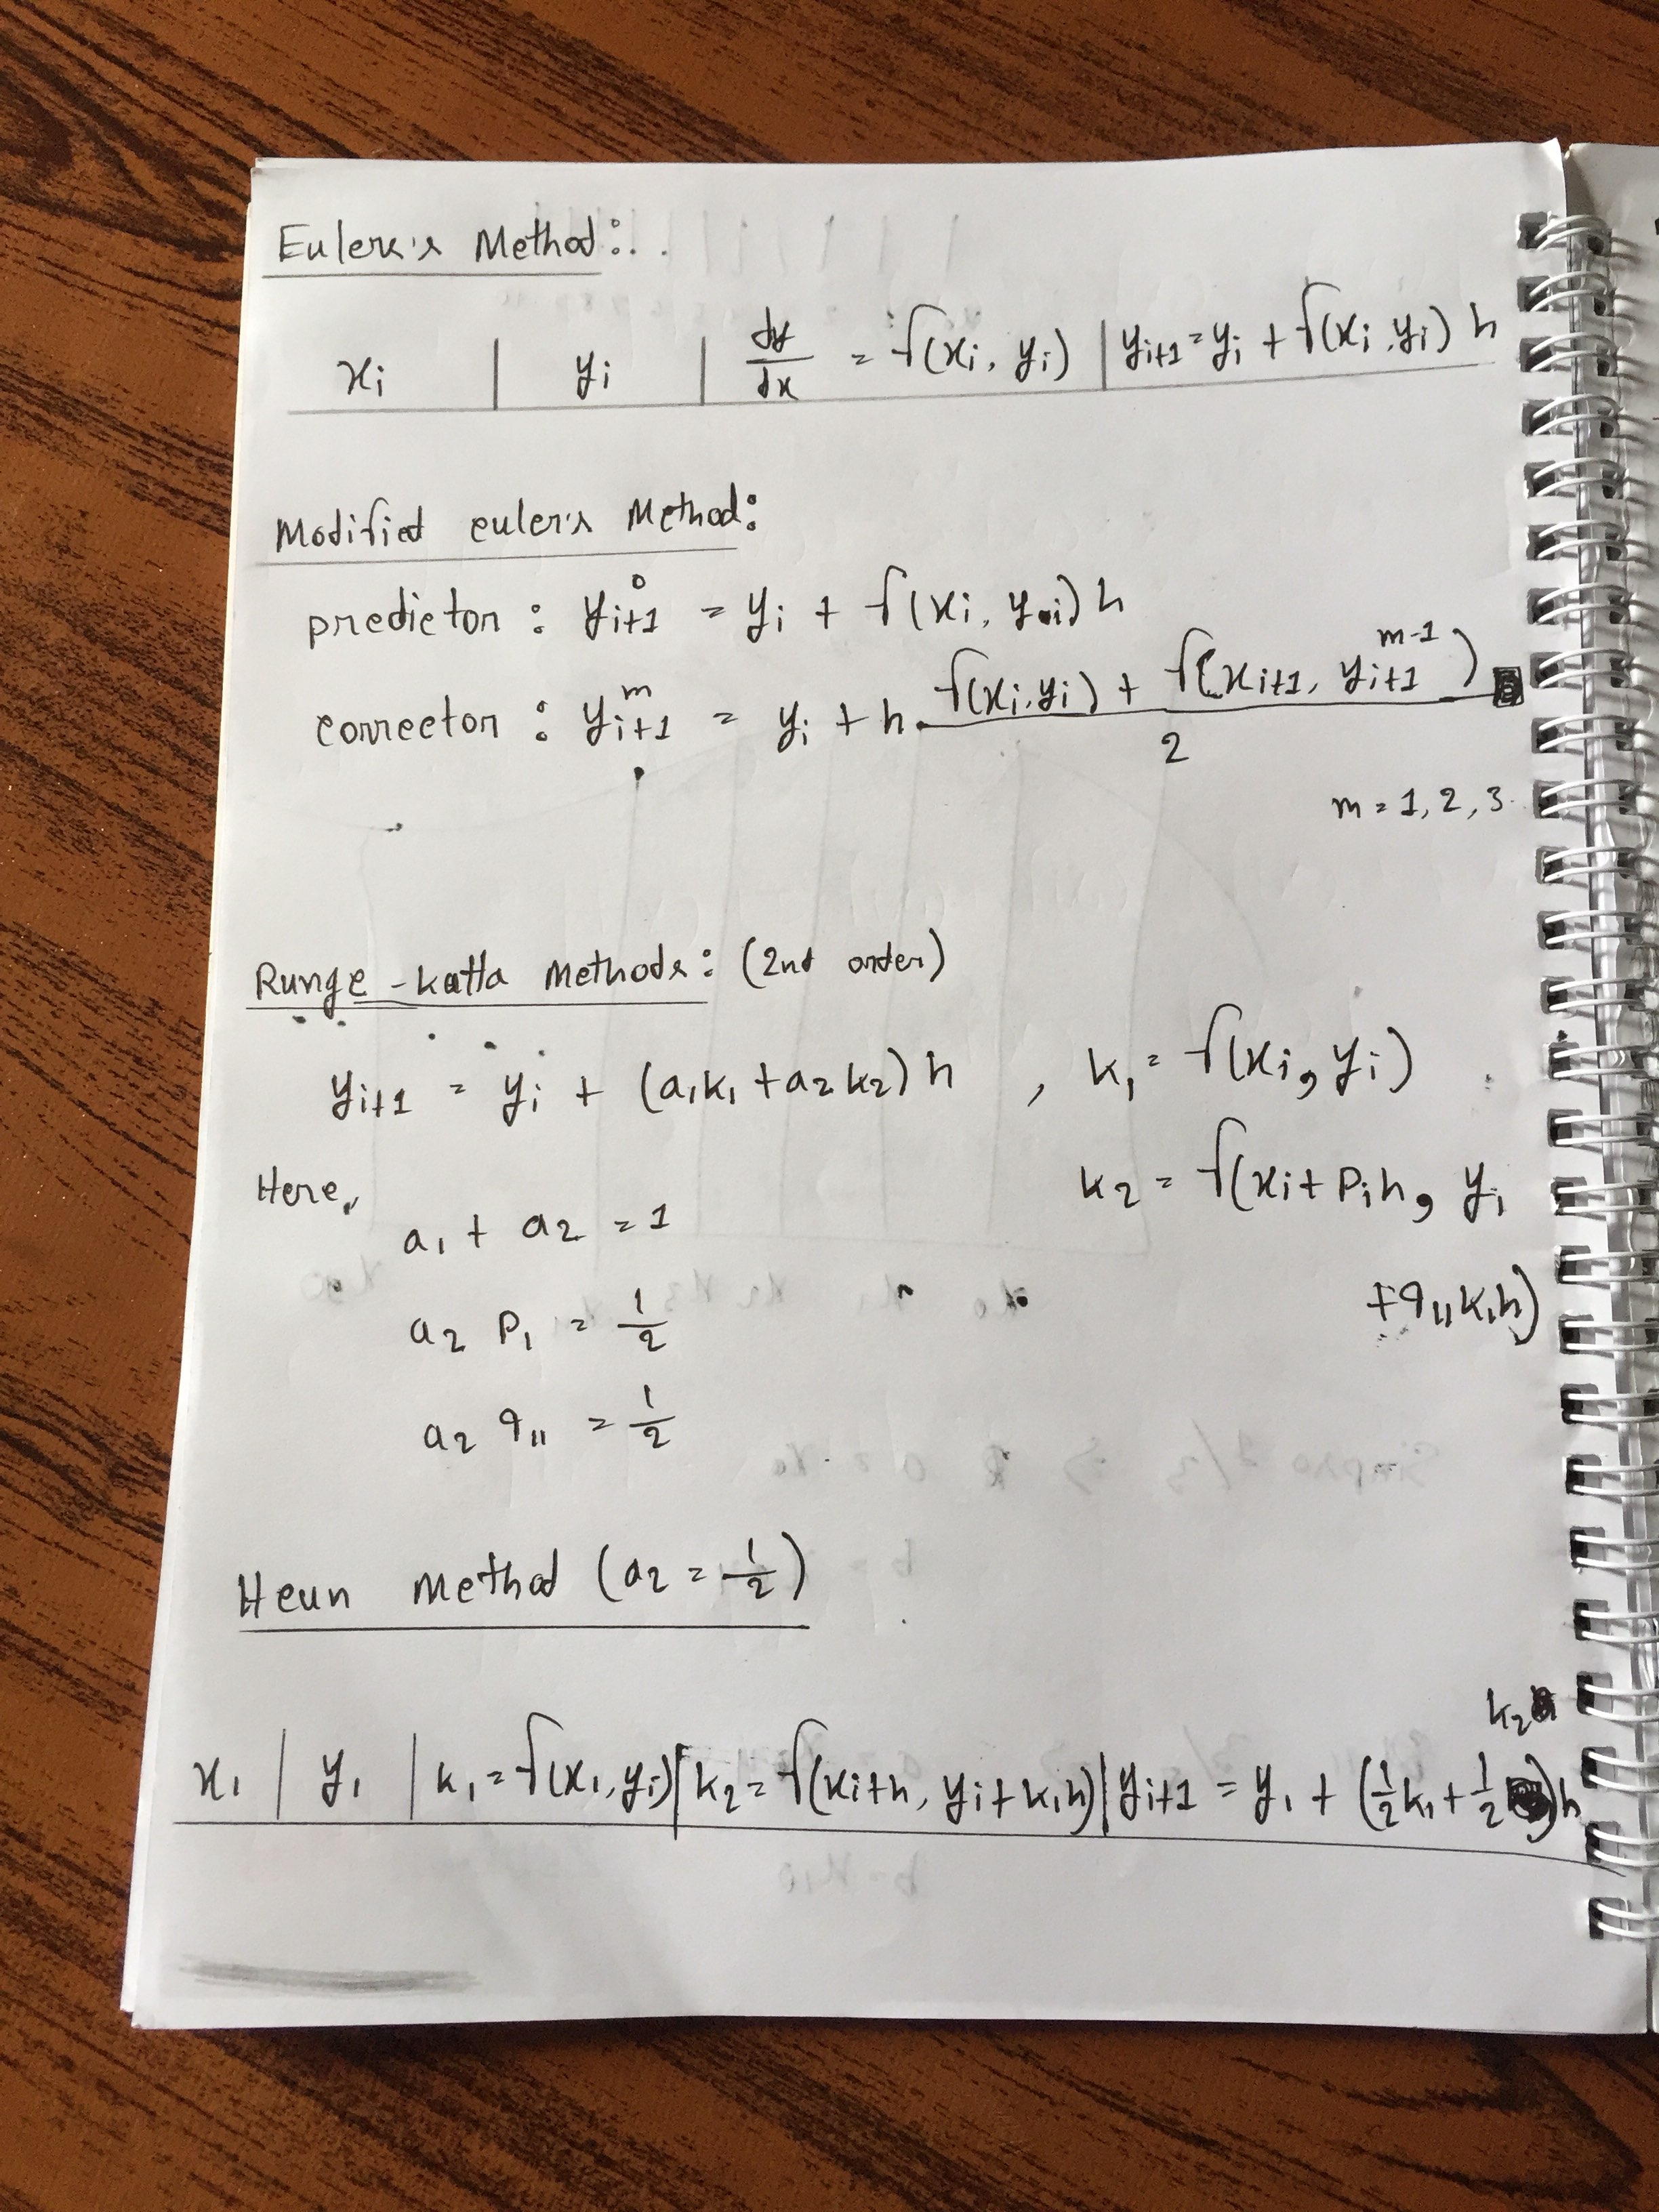 Euler's Method:
xi | yi | dy/dx = f(xi, yi) | yi+1 = yi + f(xi, yi) h
Modified euler's Method:
predictor : y⁰i+1 = yi + f(xi, yi) h
corrector : yᵐi+1 = yi + h. (f(xi, yi) + f(xi+1, yᵐ⁻¹i+1)) / 2
m = 1, 2, 3
Runge - Katta Methods: (2nd order)
yi+1 = yi + (a1k1 + a2k2) h , k1 = f(xi, yi)
Here, k2 = f(xi + P1h, yi
a1 + a2 = 1
+ q11k1h)
a2 P1 = 1/2
a2 q11 = 1/2
Heun Method (a2 = 1/2)
x1 | y1 | k1 = f(x1, yi) | k2 = f(xi+h, yi+k1h) | yi+1 = y1 + (1/2 k1 + 1/2 k2) h